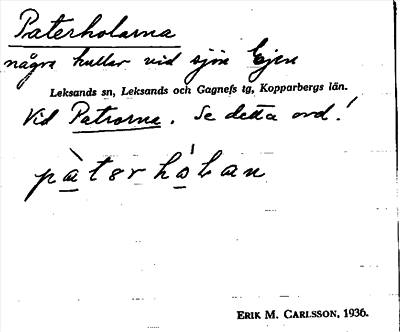 Paterholarna
några kullar vid sjön Ejen
Leksands sn, Leksands och Gagnefs tg, Kopparbergs län.
Vid Patrarna. Se detta ord!
pàterhólan
ERIK M. CARLSSON, 1936.